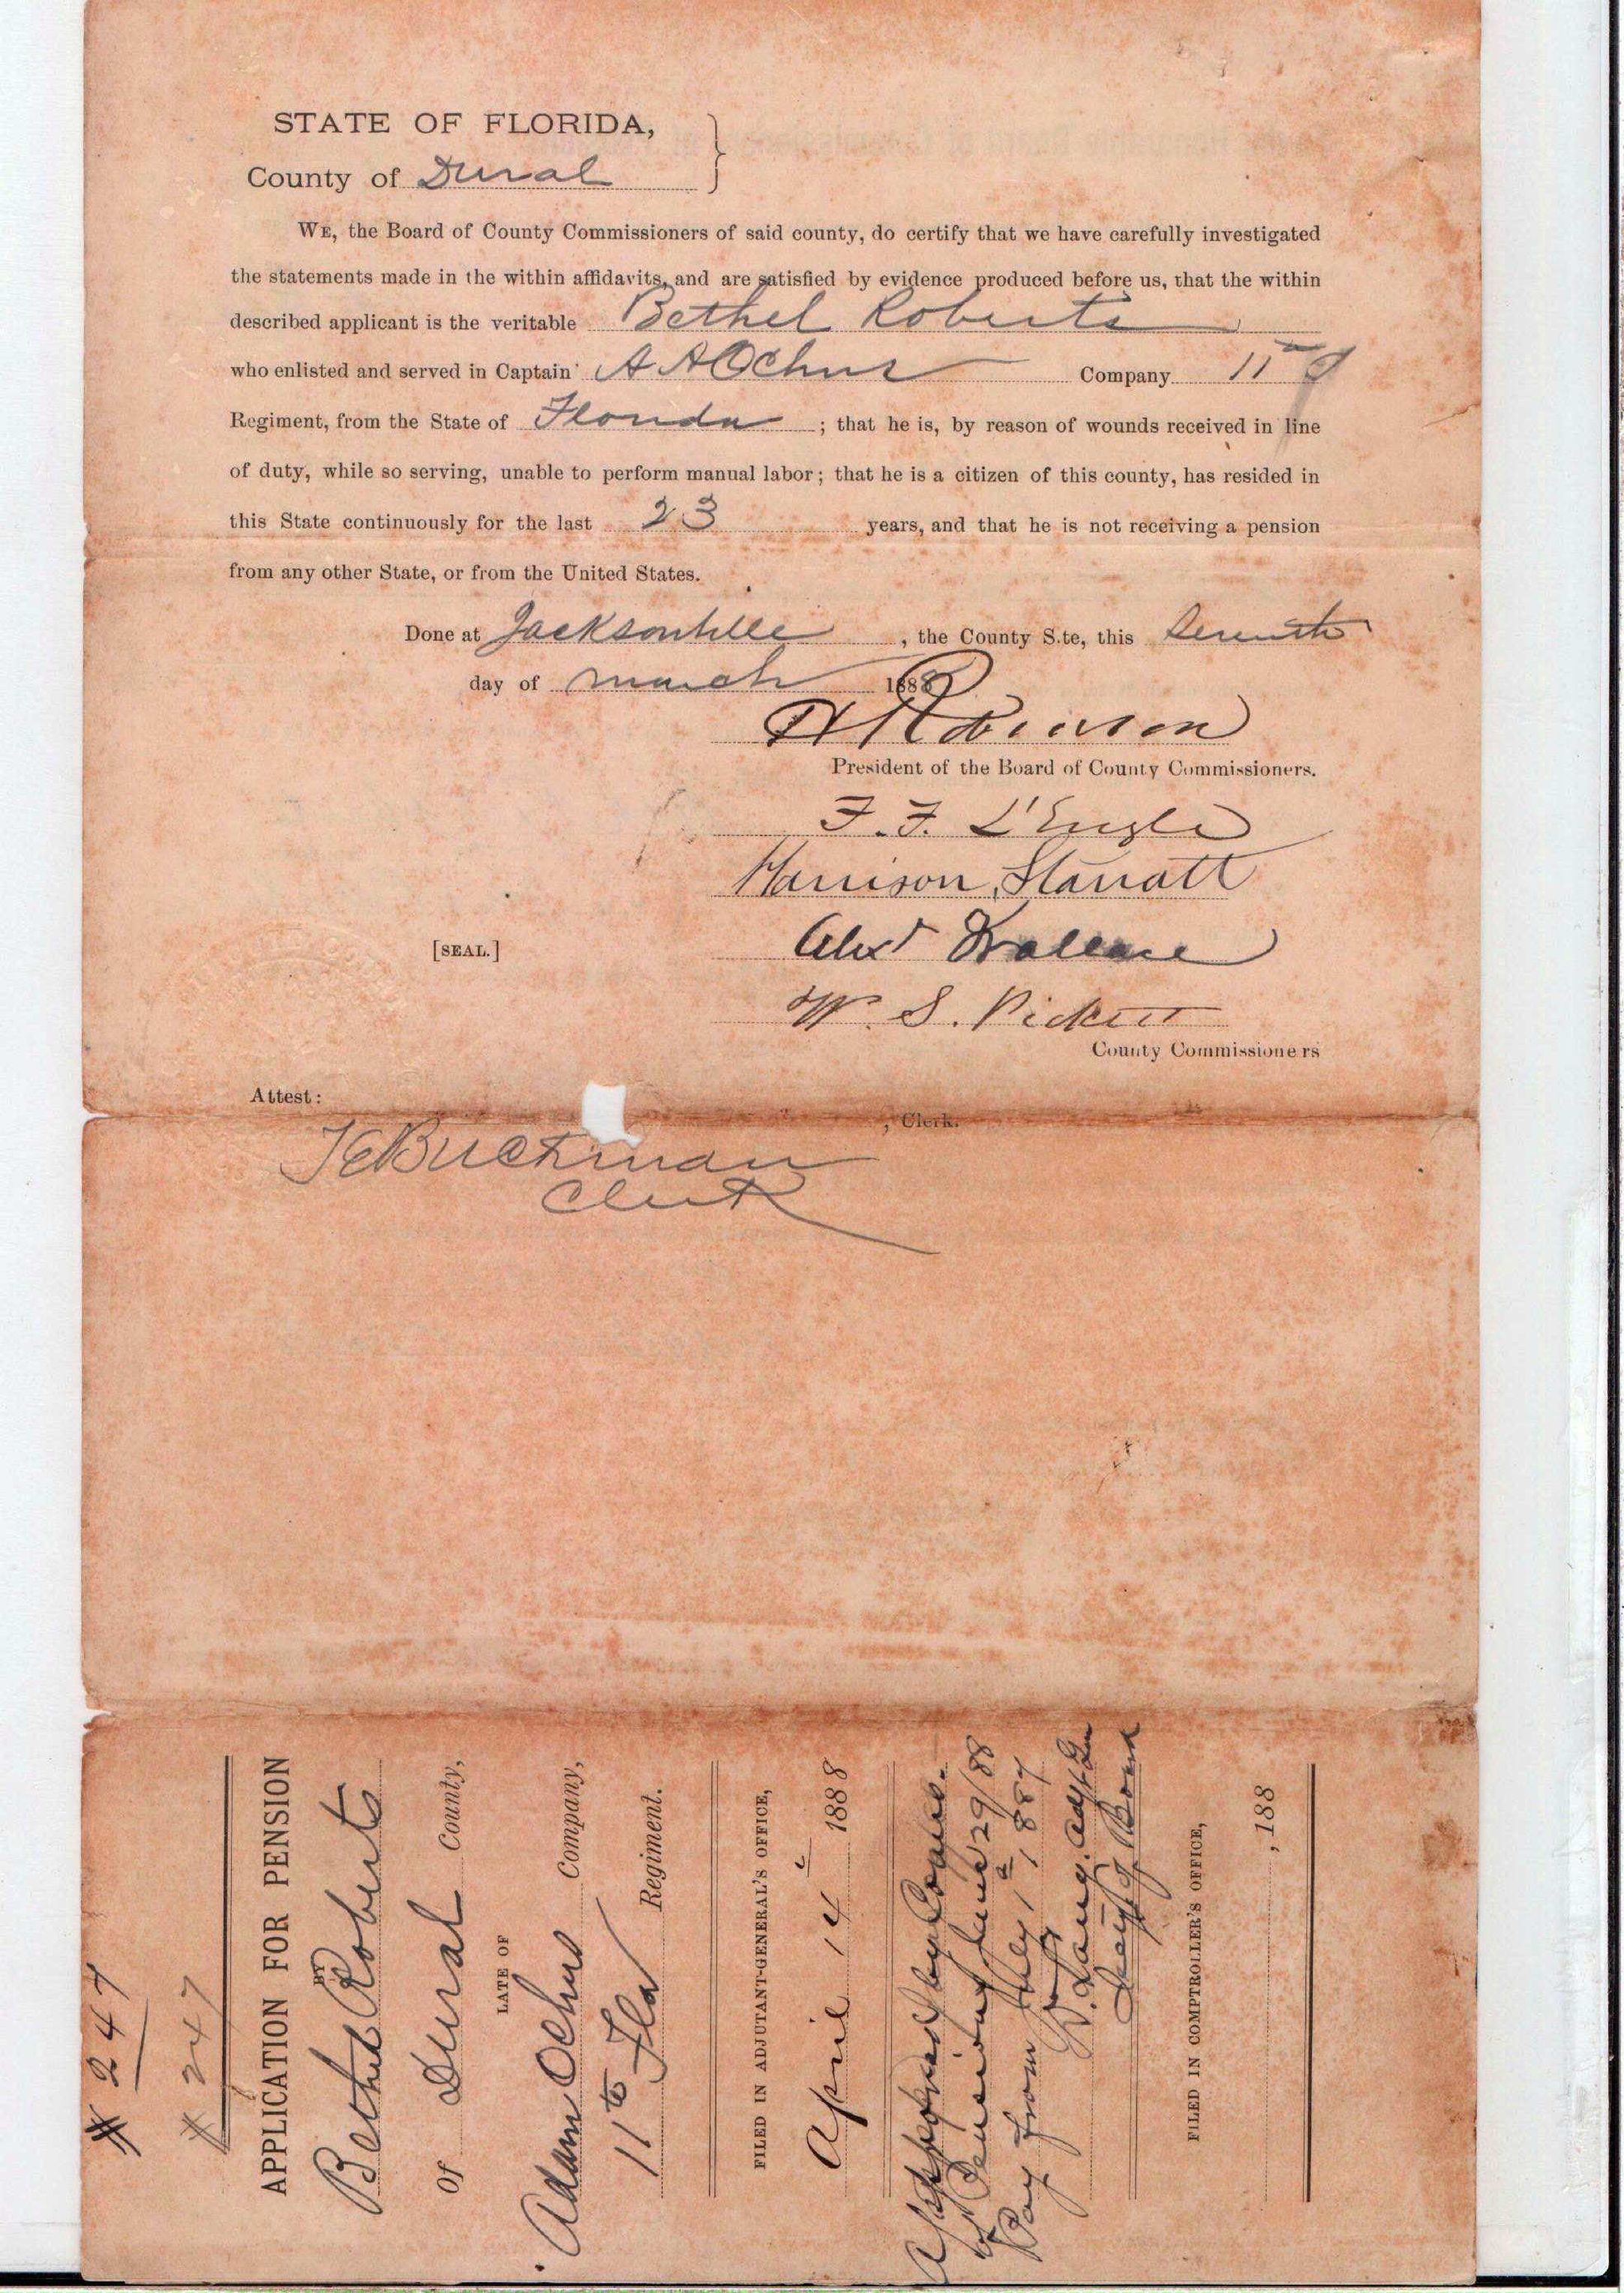 STATE OF FLORIDA,
County of Duval
WE, the Board of County Commissioners of said county, do certify that we have carefully investigated
the statements made in the within affidavits, and are satisfied by evidence produced before us, that the within
described applicant is the veritable Bethel Roberts
who enlisted and served in Captain A A Ochus Company 11
Regiment, from the State of Florida ; that he is, by reason of wounds received in line
of duty, while so serving, unable to perform manual labor; that he is a citizen of this county, has resided in
this State continuously for the last 23 years, and that he is not receiving a pension
from any other State, or from the United States.
Done at Jacksonville , the County S.te, this Seventh
day of march 1888
H Robinson
President of the Board of County Commissioners.
F. F. L'Engle
Harrison Starratt
Alexr Wallace
W. S. Pickett
[SEAL.]
County Commissioners
Attest:
, Clerk.
T E Buckman
Clerk
# 247
# 247
APPLICATION FOR PENSION
BY
Bethel Roberts
Of Duval County,
LATE OF
Adam Ochus Company,
11th Fla Regiment.
FILED IN ADJUTANT-GENERAL'S OFFICE,
April 14 1888
Approved by Board
of Pensions June 29/88
Pay from July 1 1887
D. Lang. Adjt Gen
Secy of Board
FILED IN COMPTROLLER'S OFFICE,
, 188